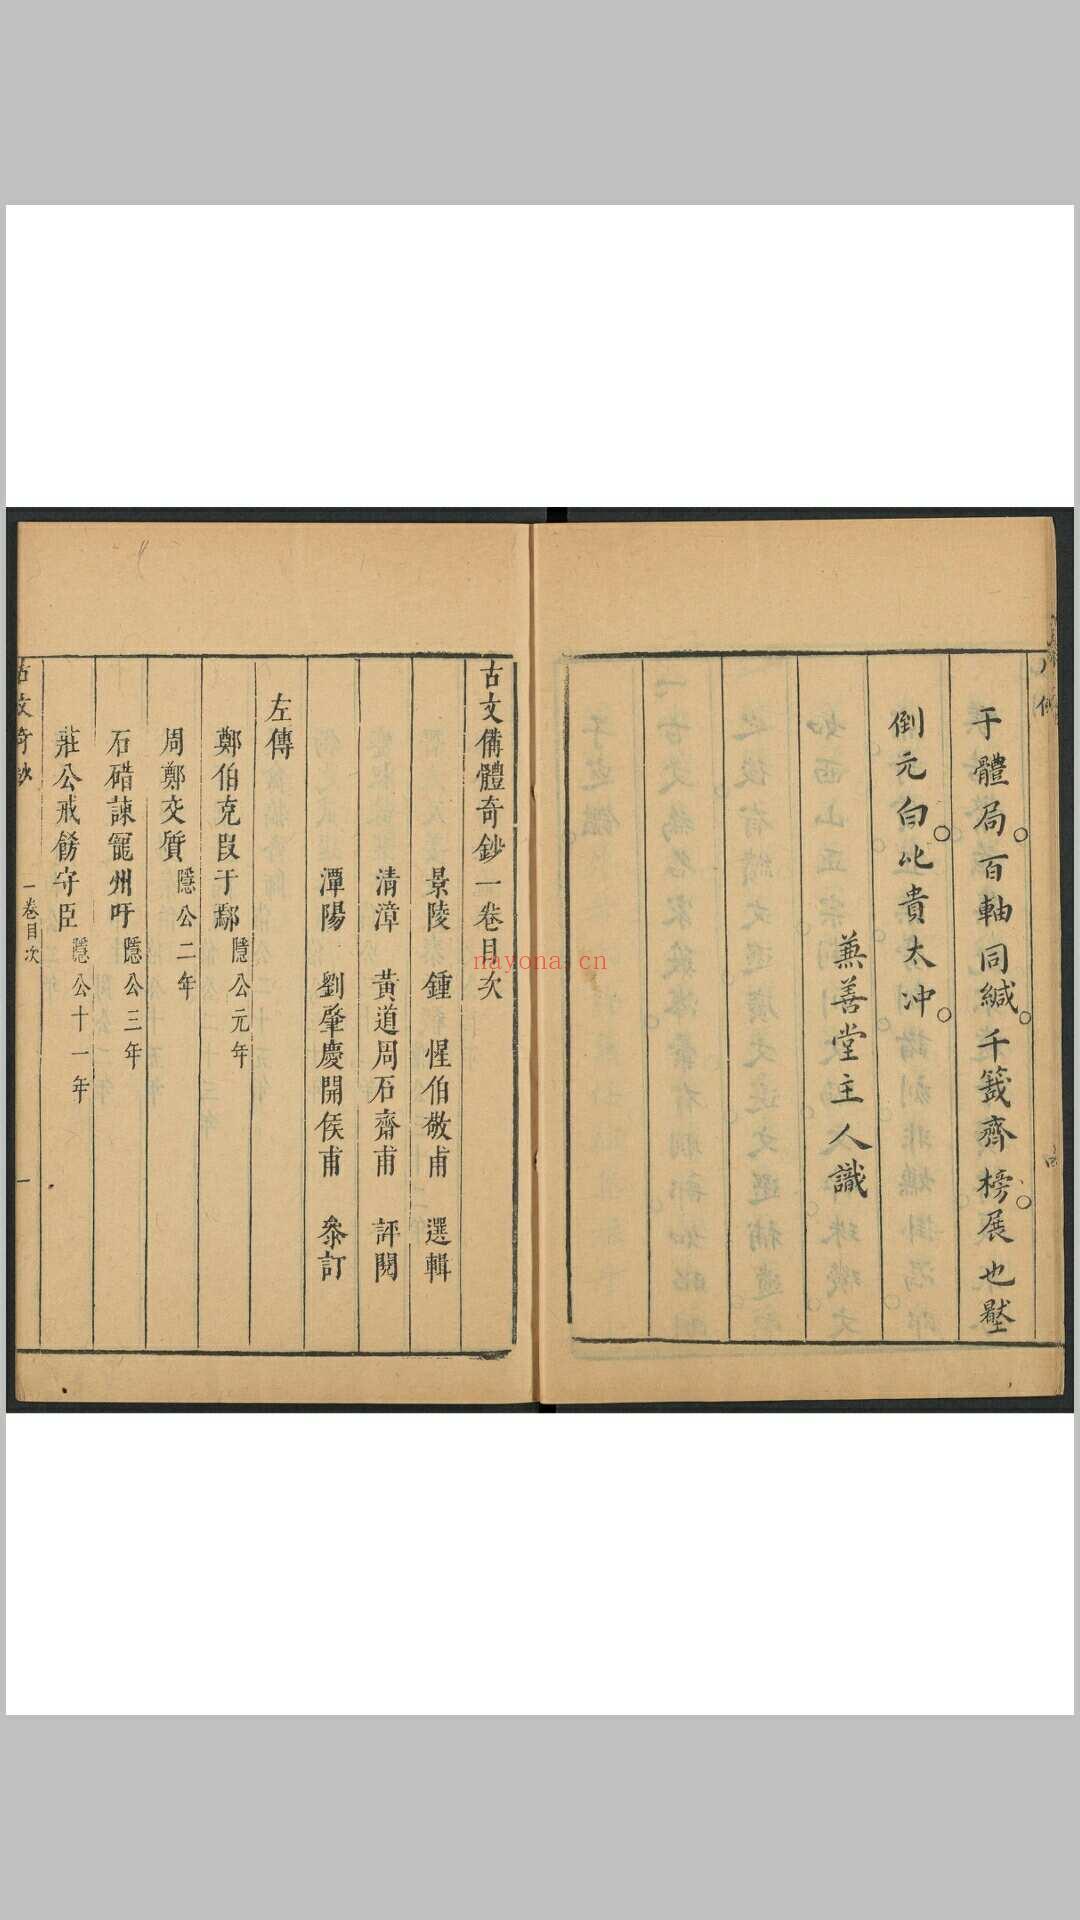 于體局百軸同緘千籤齊榜展也壓
倒元白比貴太冲
蒹善堂主人識
古文備體奇鈔一卷目次
景陵 鍾惺伯敬甫 選輯
清漳 黃道周石齋甫 評閱
潭陽 劉肇慶開侯甫 叅訂
左傳
鄭伯克段于鄢 隱公元年
周鄭交質 隱公二年
石碏諫寵州吁 隱公三年
莊公戒飭守臣 隱公十一年
古文奇鈔 一卷目次 一
nayona.cn